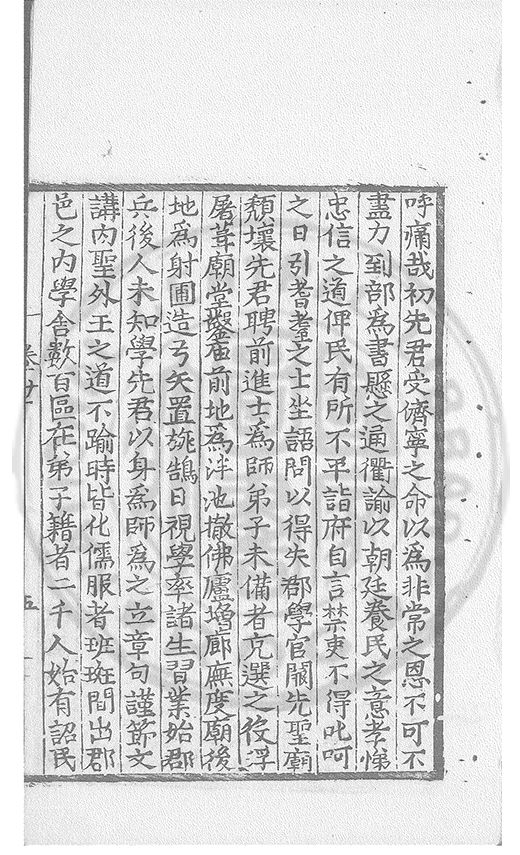 呼痛哉初先君受儕寧之命以為非常之恩不可不
盡力到部為書懸之通衢諭以朝廷養民之意孝悌
忠信之道俾民有所不平詣府自言禁吏不得叱呵
之日引耆耋之士坐語問以得失郡學官闕先聖廟
頹壞先君聘前進士為師弟子未備者充選之伇浮
屠葺廟堂鑿庙前地為泮池撤佛廬增廊廡度廟後
地為射圃造弓矢置旐鵠日視學率諸生習業始郡
兵後人未知學先君以身為師為之立章句謹節文
講内聖外王之道不踰時皆化儒服者班班間出郡
邑之内學舍數百區在弟子籍者二千人始有詔民
卷廿
五